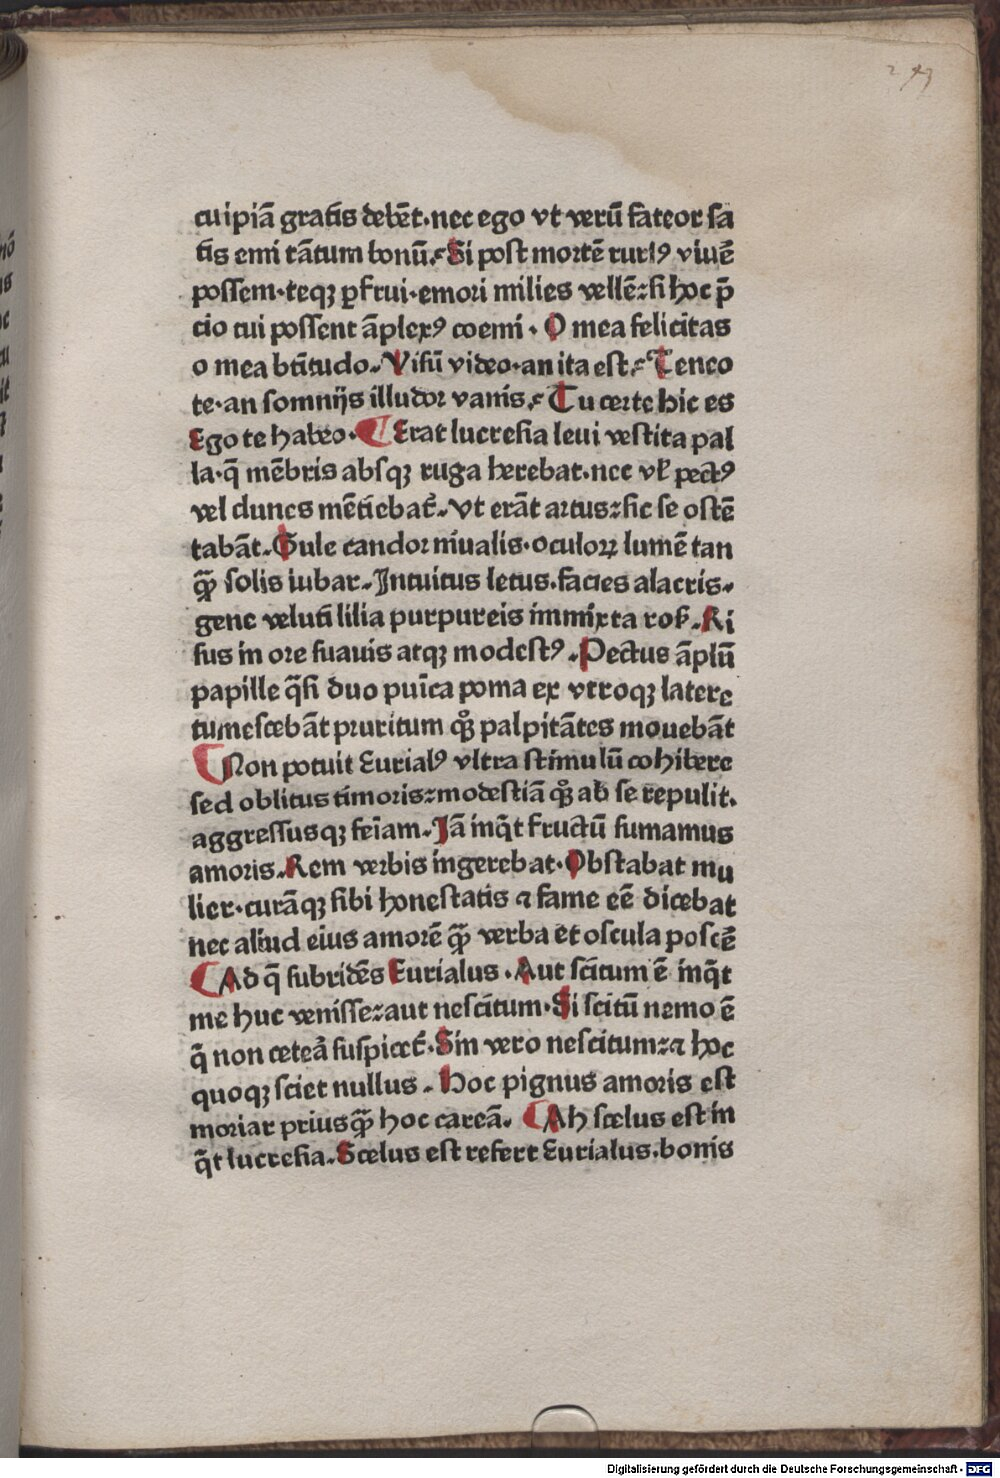 243
cuipiā gratis debēt. nec ego vt verū fateor sa
tis emi tātum bonū. Si post mortē rursꝰ viuē
possem. teqꝫ ꝑfrui. emori milies vellē: si hoc p̄
cio tui possent āplexꝰ coemi. O mea felicitas
o mea btītudo. Visū video. an ita est. Teneo
te. an somnijs illudor vanis. Tu certe hic es
Ego te habeo. ¶ Erat lucresia leui vestita pal
la. q̄ mēbris absqꝫ ruga herebat. nec vl̕ pectꝰ
vel clunes mētiebat᷑. vt erāt artus: sic se ostē
tabāt. Gule candor niualis. oculoꝝ lumē tan
qꝫ̄ solis iubar. Intuitus letus. facies alacris.
gene veluti lilia purpureis immixta ros̕. Ri
sus in ore suauis atqꝫ modestꝰ. Pectus āplū
papille q̄si duo puīca poma ex vtroqꝫ latere
tumescebāt pruritum qꝫ̄ palpitātes mouebāt
¶ Non potuit Eurialꝰ vltra stimulū cohibere
sed oblitus timoris: modestiā qꝫ̄ ab se repulit.
aggressusqꝫ feīam. Jā inq̄t fructū sumamus
amoris. Rem verbis ingerebat. Obstabat mu
lier. curāqꝫ sibi honestatis ⁊ fame eē dicebat
nec aliud eius amorē qꝫ̄ verba et oscula poscē
¶ Ad q̄ subridēs Eurialus. Aut scitum ē inq̄t
me huc venisse: aut nescitum. Si scitū nemo ē
q̄ non ceteā suspicet᷑. Sin vero nescitum: ⁊ hoc
quoqꝫ sciet nullus. Hoc pignus amoris est
moriar priusqꝫ̄ hoc careā. ¶ Ah scelus est in
q̄t lucresia. Scelus est refert Eurialus. bonis
Digitalisierung gefördert durch die Deutsche Forschungsgemeinschaft - DFG